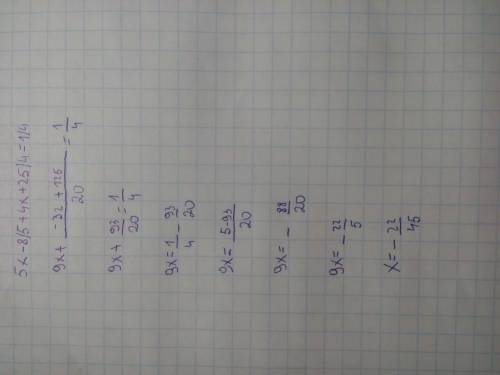 5x-8/5+4x+25/4=1/4
9x+ (-32+125)/20 = 1/4
9x+ 93/20 = 1/4
9x= 1/4 - 93/20
9x= (5-93)/20
9x= - 88/20
9x= - 22/5
x= - 22/45